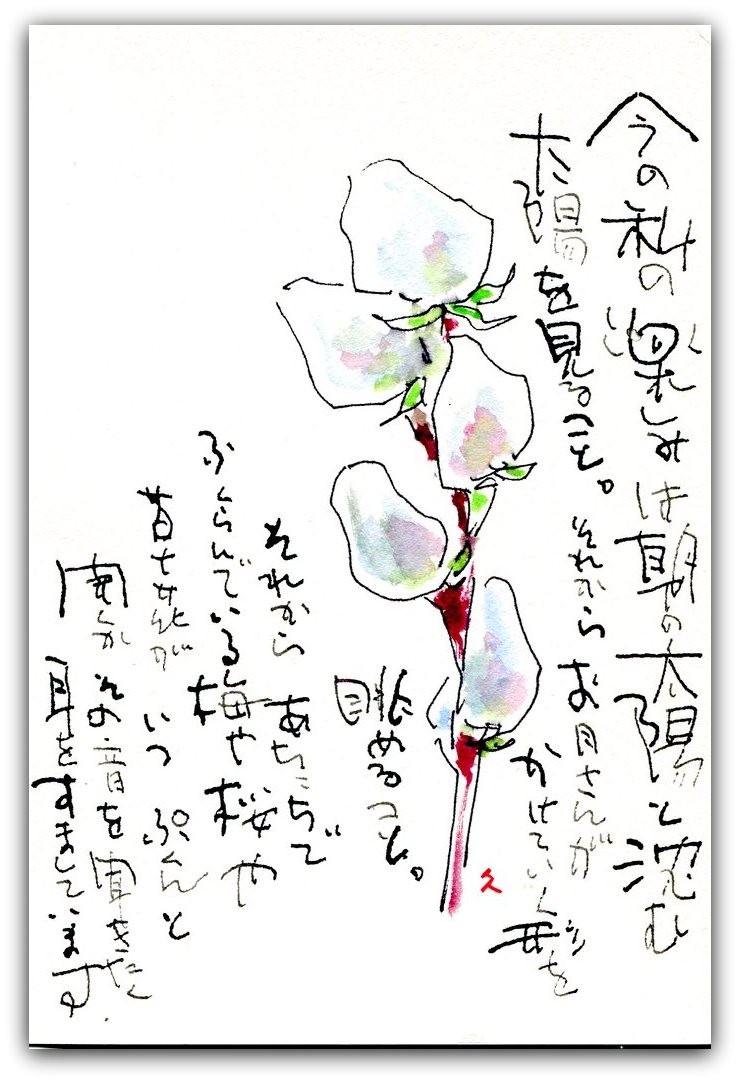 今の私の楽しみは朝の太陽と沈む
太陽を見ること。それからお月さんが
かけていく形を
眺めること。
それから あちこちで
ふくらんでいる梅や桜や
昔七花が いつ ぷんと
開くか その音を聞きたく
耳をすましています
久